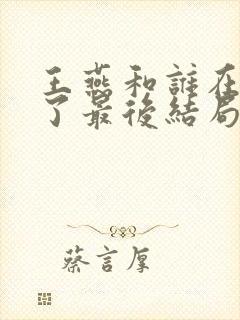 王燕和誰在
了最後結局
蔡言厚